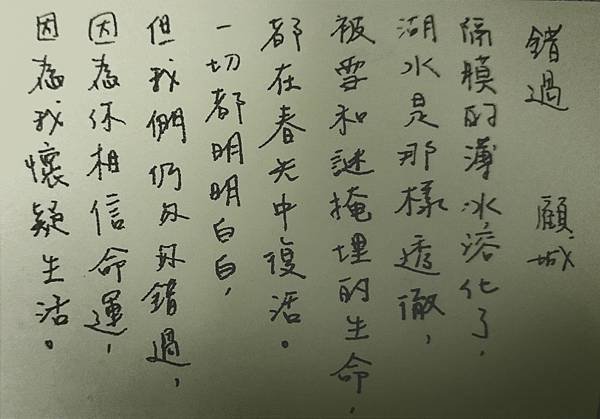 錯過 顧城
隔膜的薄冰溶化了，
湖水是那樣透徹，
被雪和謎掩埋的生命，
都在春光中復活。
一切都明明白白，
但我們仍匆匆錯過，
因為你相信命運，
因為我懷疑生活。